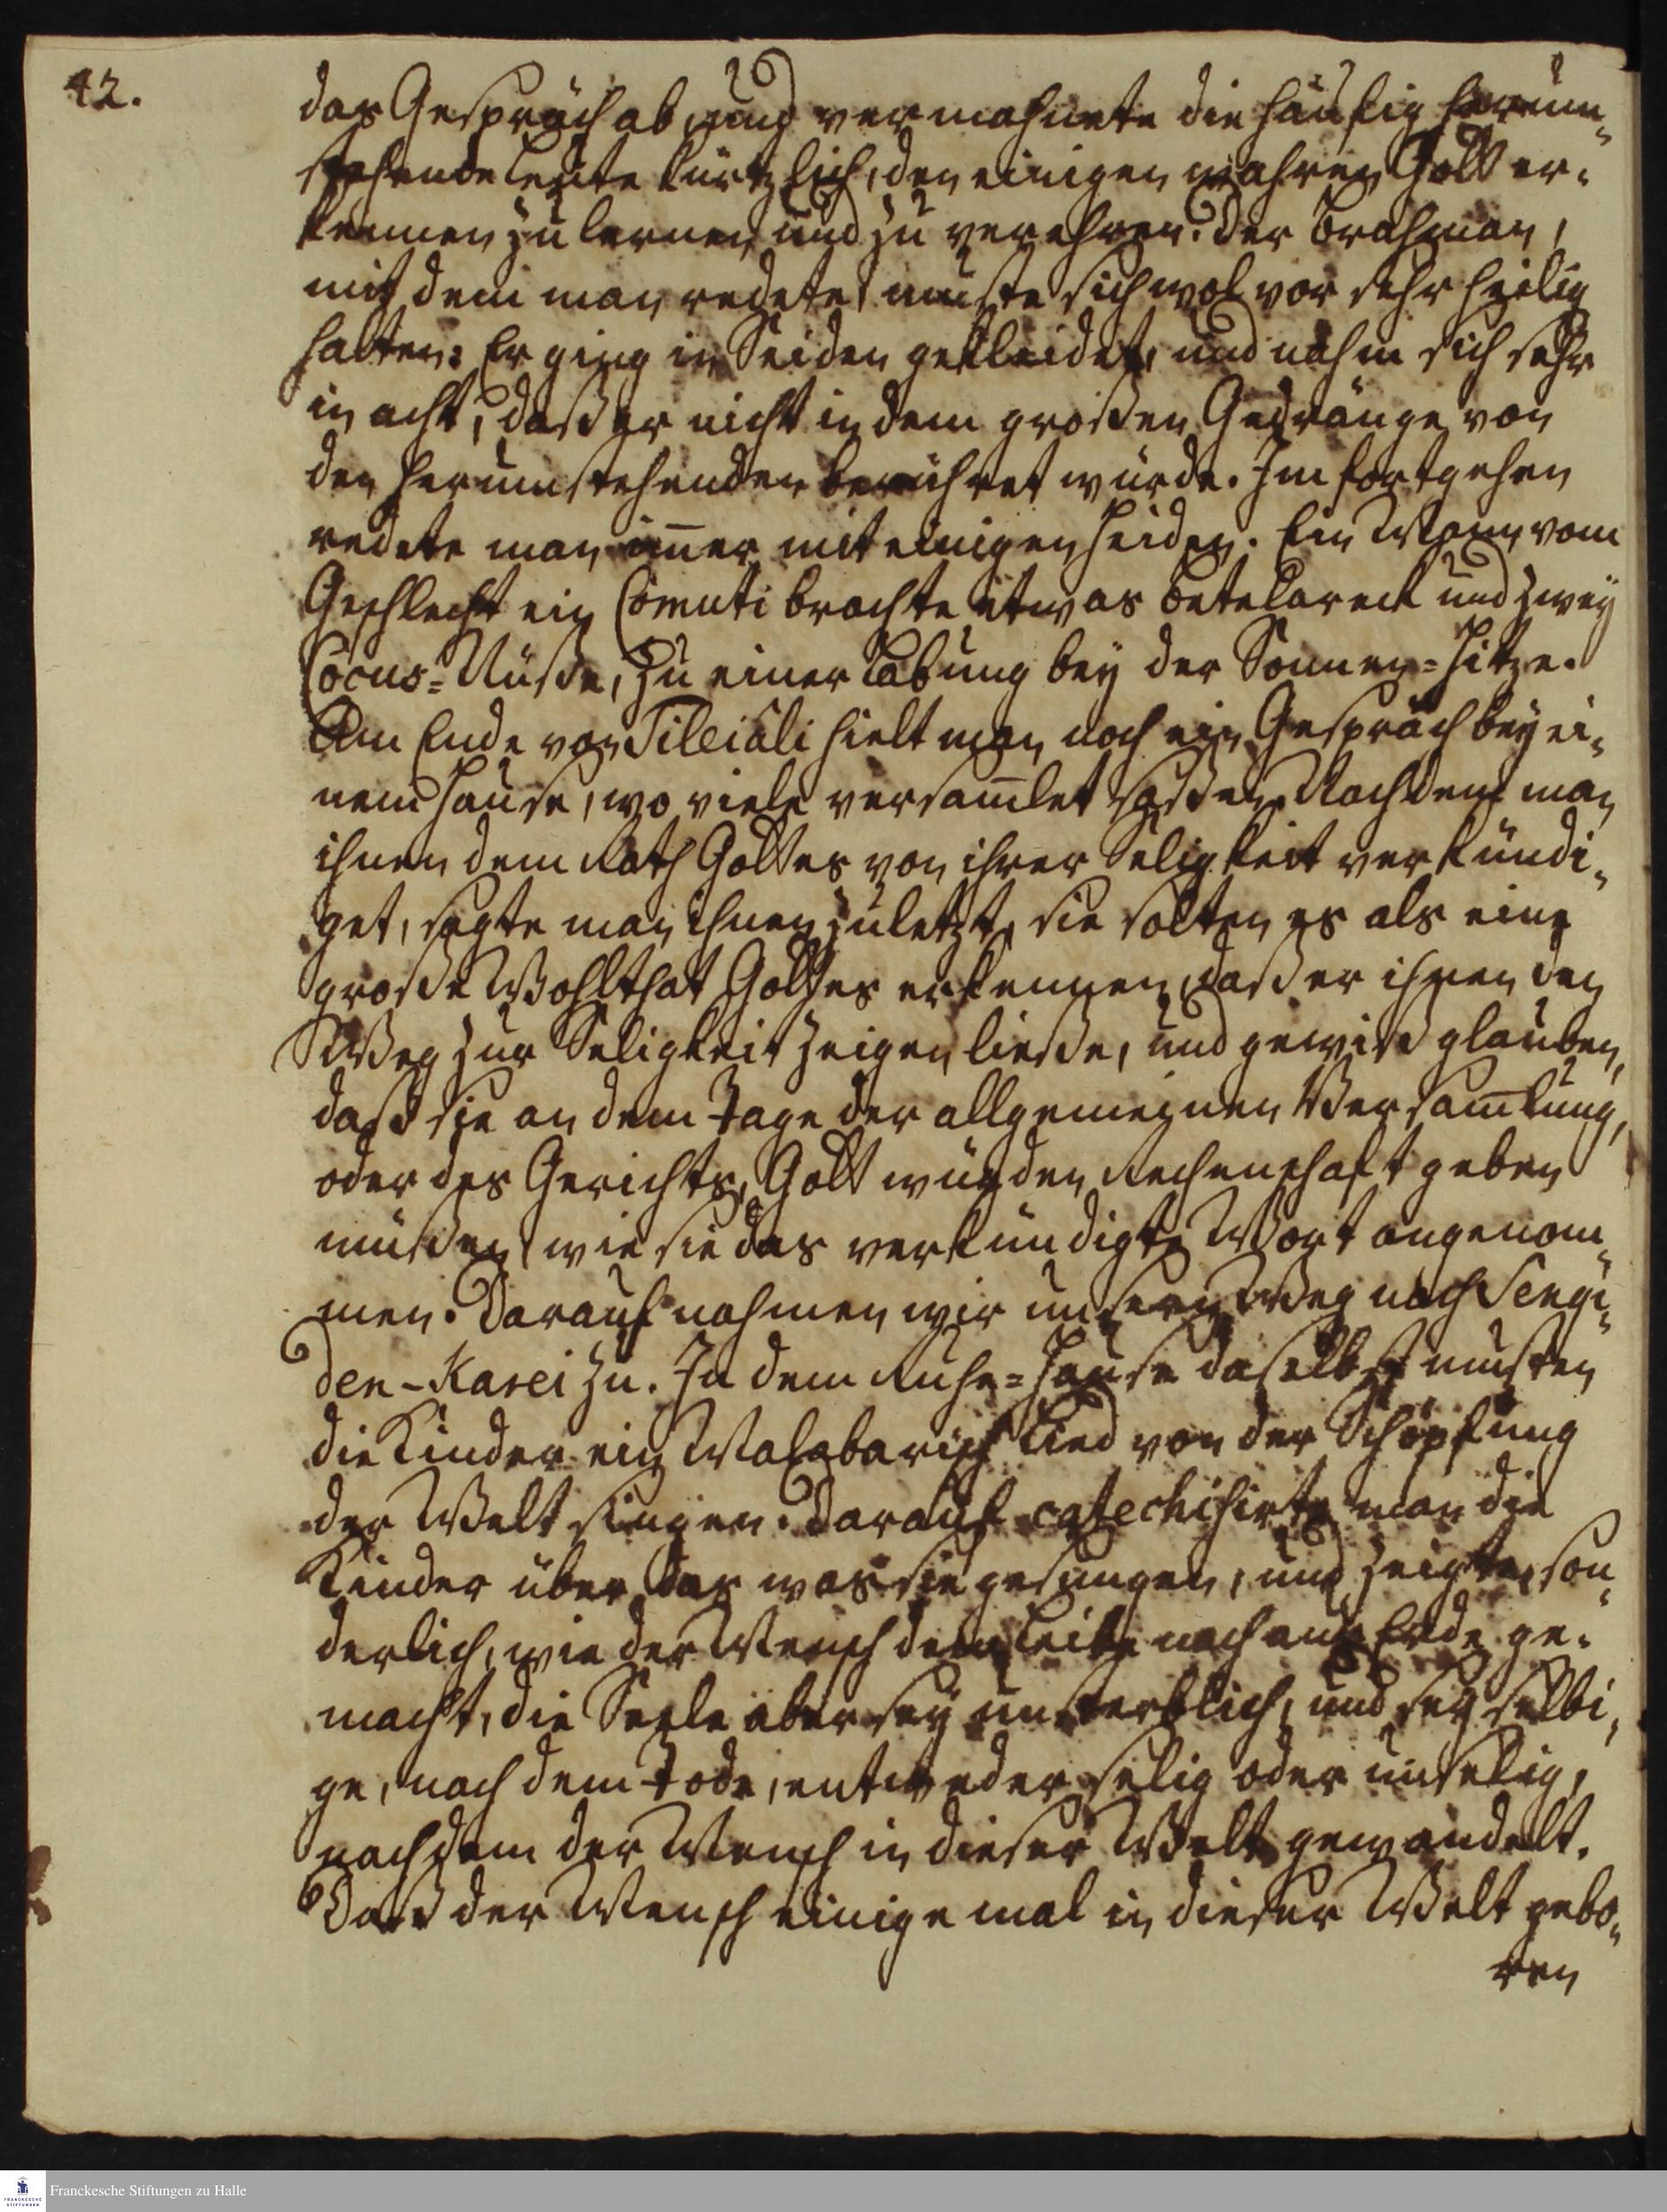 42.
das Gespräch ab, und vermahnete die häufig herum-
stehende Leute kürtzlich, den einigen wahren Gott er-
kennen zu lernen und zu verehren. Der Brahman,
mit dem man redete, muste sich wol vor sehr heilig
halten: Er ging in Seiden gekleidet, und nahm sich sehr
in acht, daß er nicht in dem großen Gedränge von
den herumstehenden berühret würde. Im fortgehen
redete man im̄er mit einigen Heiden. Ein Mann vom
Geschlecht ein Comuti brachte etwas Betelareck und zwey
Cocus-Nüße, zu einer Labung bey der Sonnen-Hitze.
Am Ende von Tileiali hielt man noch ein Gespräch bey ei-
nem Hause, wo viele versam̄let saßen. Nachdem man
ihnen dem Rath Gottes von ihrer Seligkeit verkündi-
get, sagte man ihnen zuletzt, sie solten es als eine
große Wohlthat Gottes erkennen, daß er ihnen den
Weg zur Seligkeit zeigen ließe, und gewiß glauben,
daß sie an dem Tage der allgemeinen Versam̄lung,
oder des Gerichts, Gott würden Rechenschaft geben
müßen, wie sie das verkündigte Wort angenom-
men. Darauf nahmen wir unsern Weg nach Sengi-
den-Karei zu. In dem Ruhe-Hause daselbst musten
die Kinder ein Malabarisch Lied von der Schöpfung
der Welt singen. Darauf catechisirte man die
Kinder über das was sie gesungen, und zeigte son-
derlich, wie der Mensch dem Leibe nach aus Erde ge-
macht, die Seele aber sey unsterblich, und sey selbi-
ge, nach dem Tode, entweder selig oder unselig,
nachdem der Mensch in dieser Welt gewandelt.
Daß der Mensch einige mal in dieser Welt gebo-
ren
FRANCKESCHE STIFTUNGEN
Franckesche Stiftungen zu Halle